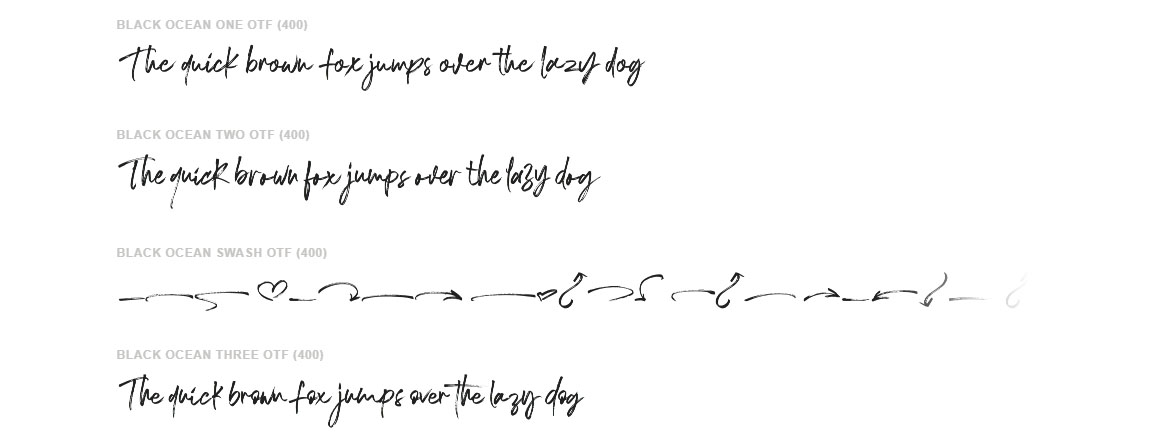 BLACK OCEAN ONE OTF (400)
The quick brown fox jumps over the lazy dog
BLACK OCEAN TWO OTF (400)
The quick brown fox jumps over the lazy dog
BLACK OCEAN SWASH OTF (400)
BLACK OCEAN THREE OTF (400)
The quick brown fox jumps over the lazy dog